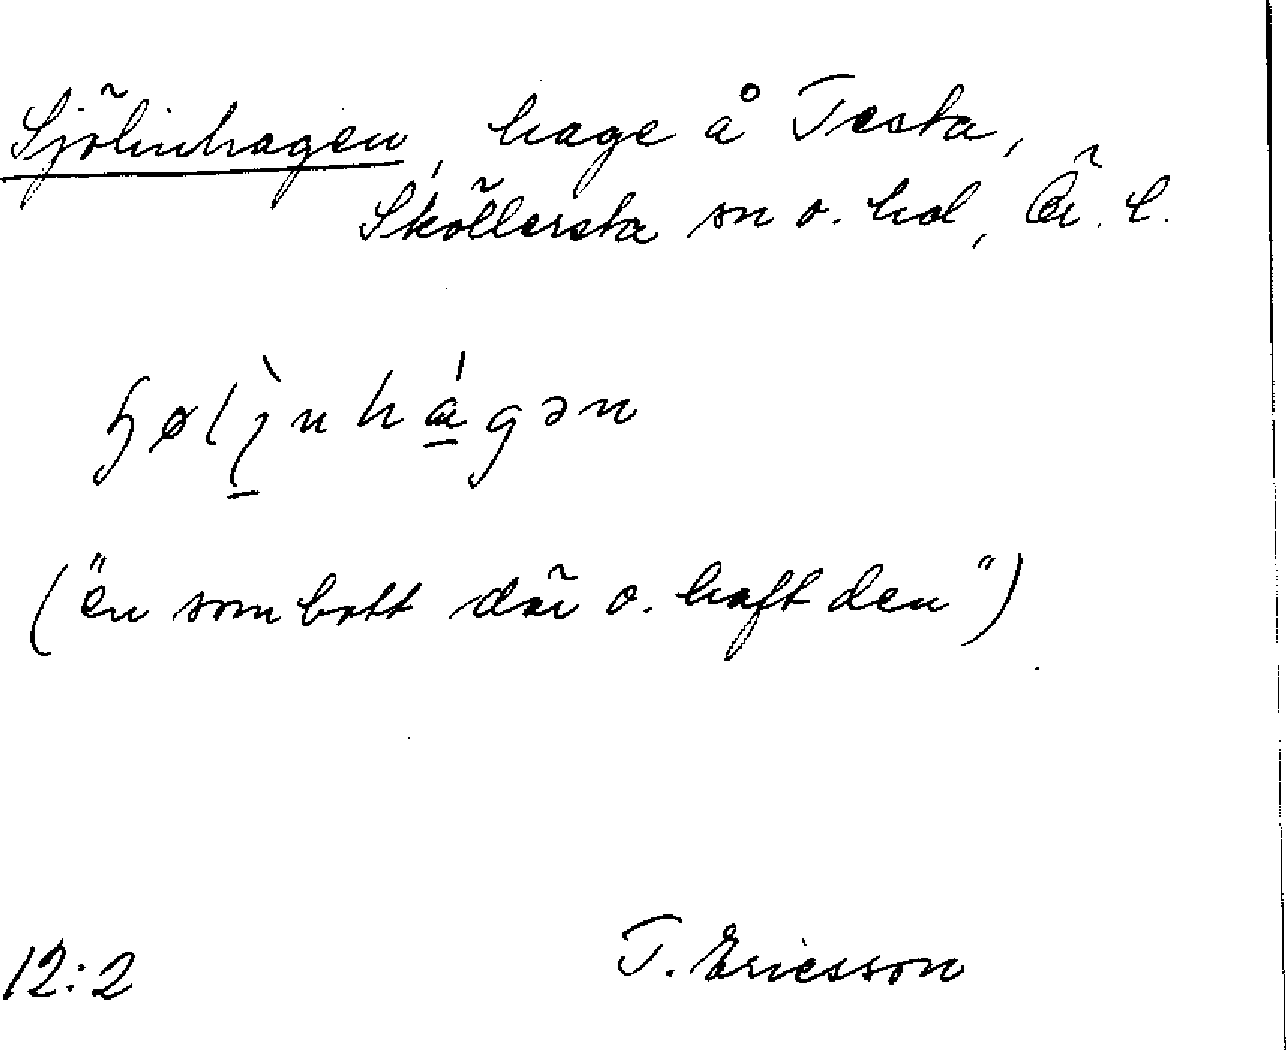 Sjölinhagen, hage å Testa,
Sköllersta sn o. hd, Ör. l.
("en som bott där o. haft den")
12:2 T. Ericsson